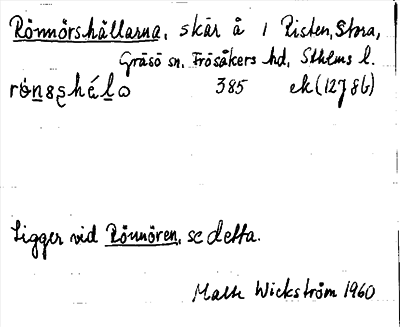 Rönnörshällarna, skär å 1 Risten, Stora,
Gräsö sn. Frösåkers hd, Sthlms l.
385 ek (12786)
Ligger vid Rönnören, se detta.
Malte Wickström 1960